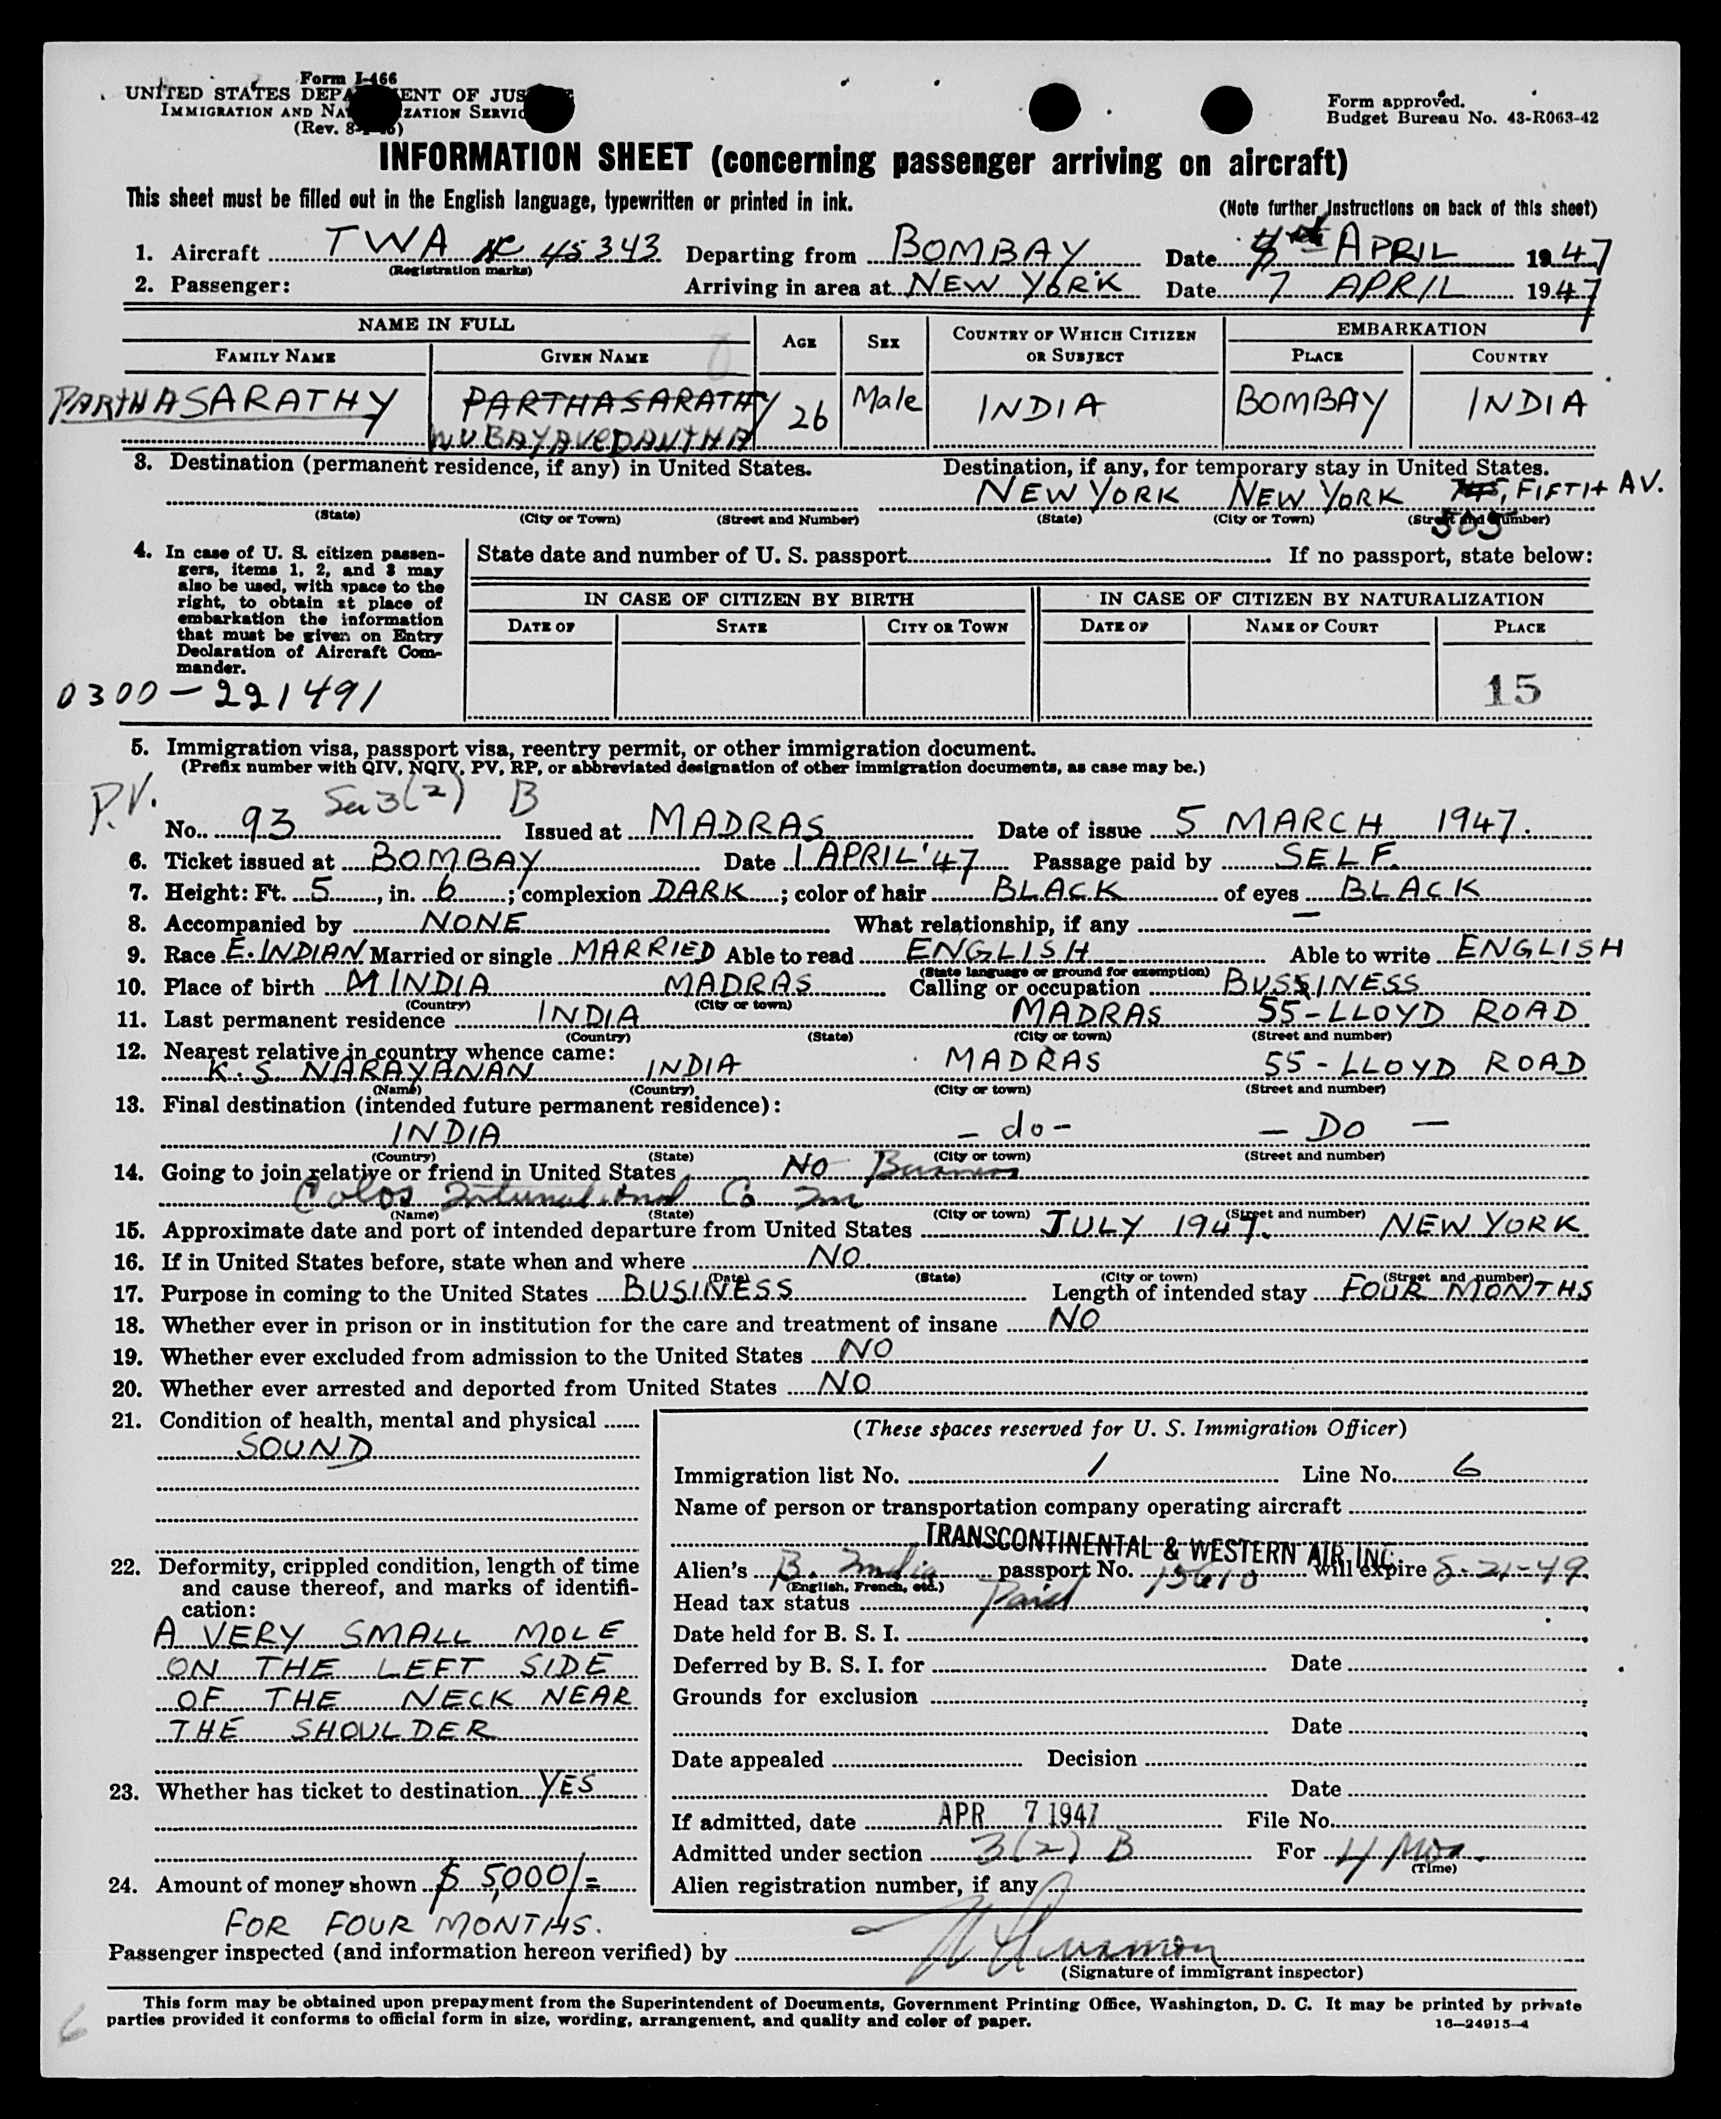 Form I-466
UNITED STATES DEPARTMENT OF JUSTICE
IMMIGRATION AND NATURALIZATION SERVICE
(Rev. 8-
Form approved.
Budget Bureau No. 43-R063-42
INFORMATION SHEET (concerning passenger arriving on aircraft)
This sheet must be filled out in the English language, typewritten or printed in ink.
(Note further instructions on back of this sheet)
1. Aircraft TWA NC 45343 Departing from BOMBAY Date APRIL 1947
(Registration marks)
2. Passenger: Arriving in area at NEW YORK Date 7 APRIL 1947
NAME IN FULL AGE SEX COUNTRY OF WHICH CITIZEN OR SUBJECT EMBARKATION
FAMILY NAME GIVEN NAME PLACE COUNTRY
PARTHASARATHY PARTHASARATHY 26 Male INDIA BOMBAY INDIA
3. Destination (permanent residence, if any) in United States. Destination, if any, for temporary stay in United States.
NEW YORK NEW YORK FIFTH AV.
(State) (City or Town) (Street and Number) (State) (City or Town) (Street and Number)
505
4. In case of U. S. citizen passen-
gers, items 1, 2, and 3 may
also be used, with space to the
right, to obtain at place of
embarkation the information
that must be given on Entry
Declaration of Aircraft Com-
mander.
0300-221491
State date and number of U. S. passport If no passport, state below:
IN CASE OF CITIZEN BY BIRTH IN CASE OF CITIZEN BY NATURALIZATION
DATE OF STATE CITY OR TOWN DATE OF NAME OF COURT PLACE
15
5. Immigration visa, passport visa, reentry permit, or other immigration document.
(Prefix number with QIV, NQIV, PV, RP, or abbreviated designation of other immigration documents, as case may be.)
P.V. Sec 3(2) B
No. 93 Issued at MADRAS Date of issue 5 MARCH 1947.
6. Ticket issued at BOMBAY Date 1 APRIL '47 Passage paid by SELF.
7. Height: Ft. 5, in. 6; complexion DARK; color of hair BLACK of eyes BLACK
8. Accompanied by NONE What relationship, if any —
9. Race E. INDIAN Married or single MARRIED Able to read ENGLISH Able to write ENGLISH
(State language or ground for exemption)
10. Place of birth INDIA MADRAS Calling or occupation BUSSINESS
(Country) (City or town)
11. Last permanent residence INDIA MADRAS 55-LLOYD ROAD
(Country) (State) (City or town) (Street and number)
12. Nearest relative in country whence came:
K. S. NARAYANAN INDIA MADRAS 55-LLOYD ROAD
(Name) (Country) (City or town) (Street and number)
13. Final destination (intended future permanent residence):
INDIA - do - - DO -
(Country) (State) (City or town) (Street and number)
14. Going to join relative or friend in United States NO Business
International Co
(Name) (State) (City or town) (Street and number)
15. Approximate date and port of intended departure from United States JULY 1947. NEW YORK
16. If in United States before, state when and where NO.
(Date) (State) (City or town) (Street and number)
17. Purpose in coming to the United States BUSINESS Length of intended stay FOUR MONTHS
18. Whether ever in prison or in institution for the care and treatment of insane NO
19. Whether ever excluded from admission to the United States NO
20. Whether ever arrested and deported from United States NO
21. Condition of health, mental and physical
SOUND
22. Deformity, crippled condition, length of time
and cause thereof, and marks of identifi-
cation:
A VERY SMALL MOLE
ON THE LEFT SIDE
OF THE NECK NEAR
THE SHOULDER
23. Whether has ticket to destination YES
24. Amount of money shown $ 5,000/=
FOR FOUR MONTHS.
(These spaces reserved for U. S. Immigration Officer)
Immigration list No. 1 Line No. 6
Name of person or transportation company operating aircraft
TRANSCONTINENTAL & WESTERN AIR, INC.
Alien's B. India passport No. 15610 will expire 8-21-49
(English, French, etc.)
Head tax status Paid
Date held for B. S. I.
Deferred by B. S. I. for Date
Grounds for exclusion
Date
Date appealed Decision
Date
If admitted, date APR 7 1947 File No.
Admitted under section 3(2) B For 4 Mos.
(Time)
Alien registration number, if any
Passenger inspected (and information hereon verified) by
(Signature of immigrant inspector)
This form may be obtained upon prepayment from the Superintendent of Documents, Government Printing Office, Washington, D. C. It may be printed by private
parties provided it conforms to official form in size, wording, arrangement, and quality and color of paper.
16—24915-4
6